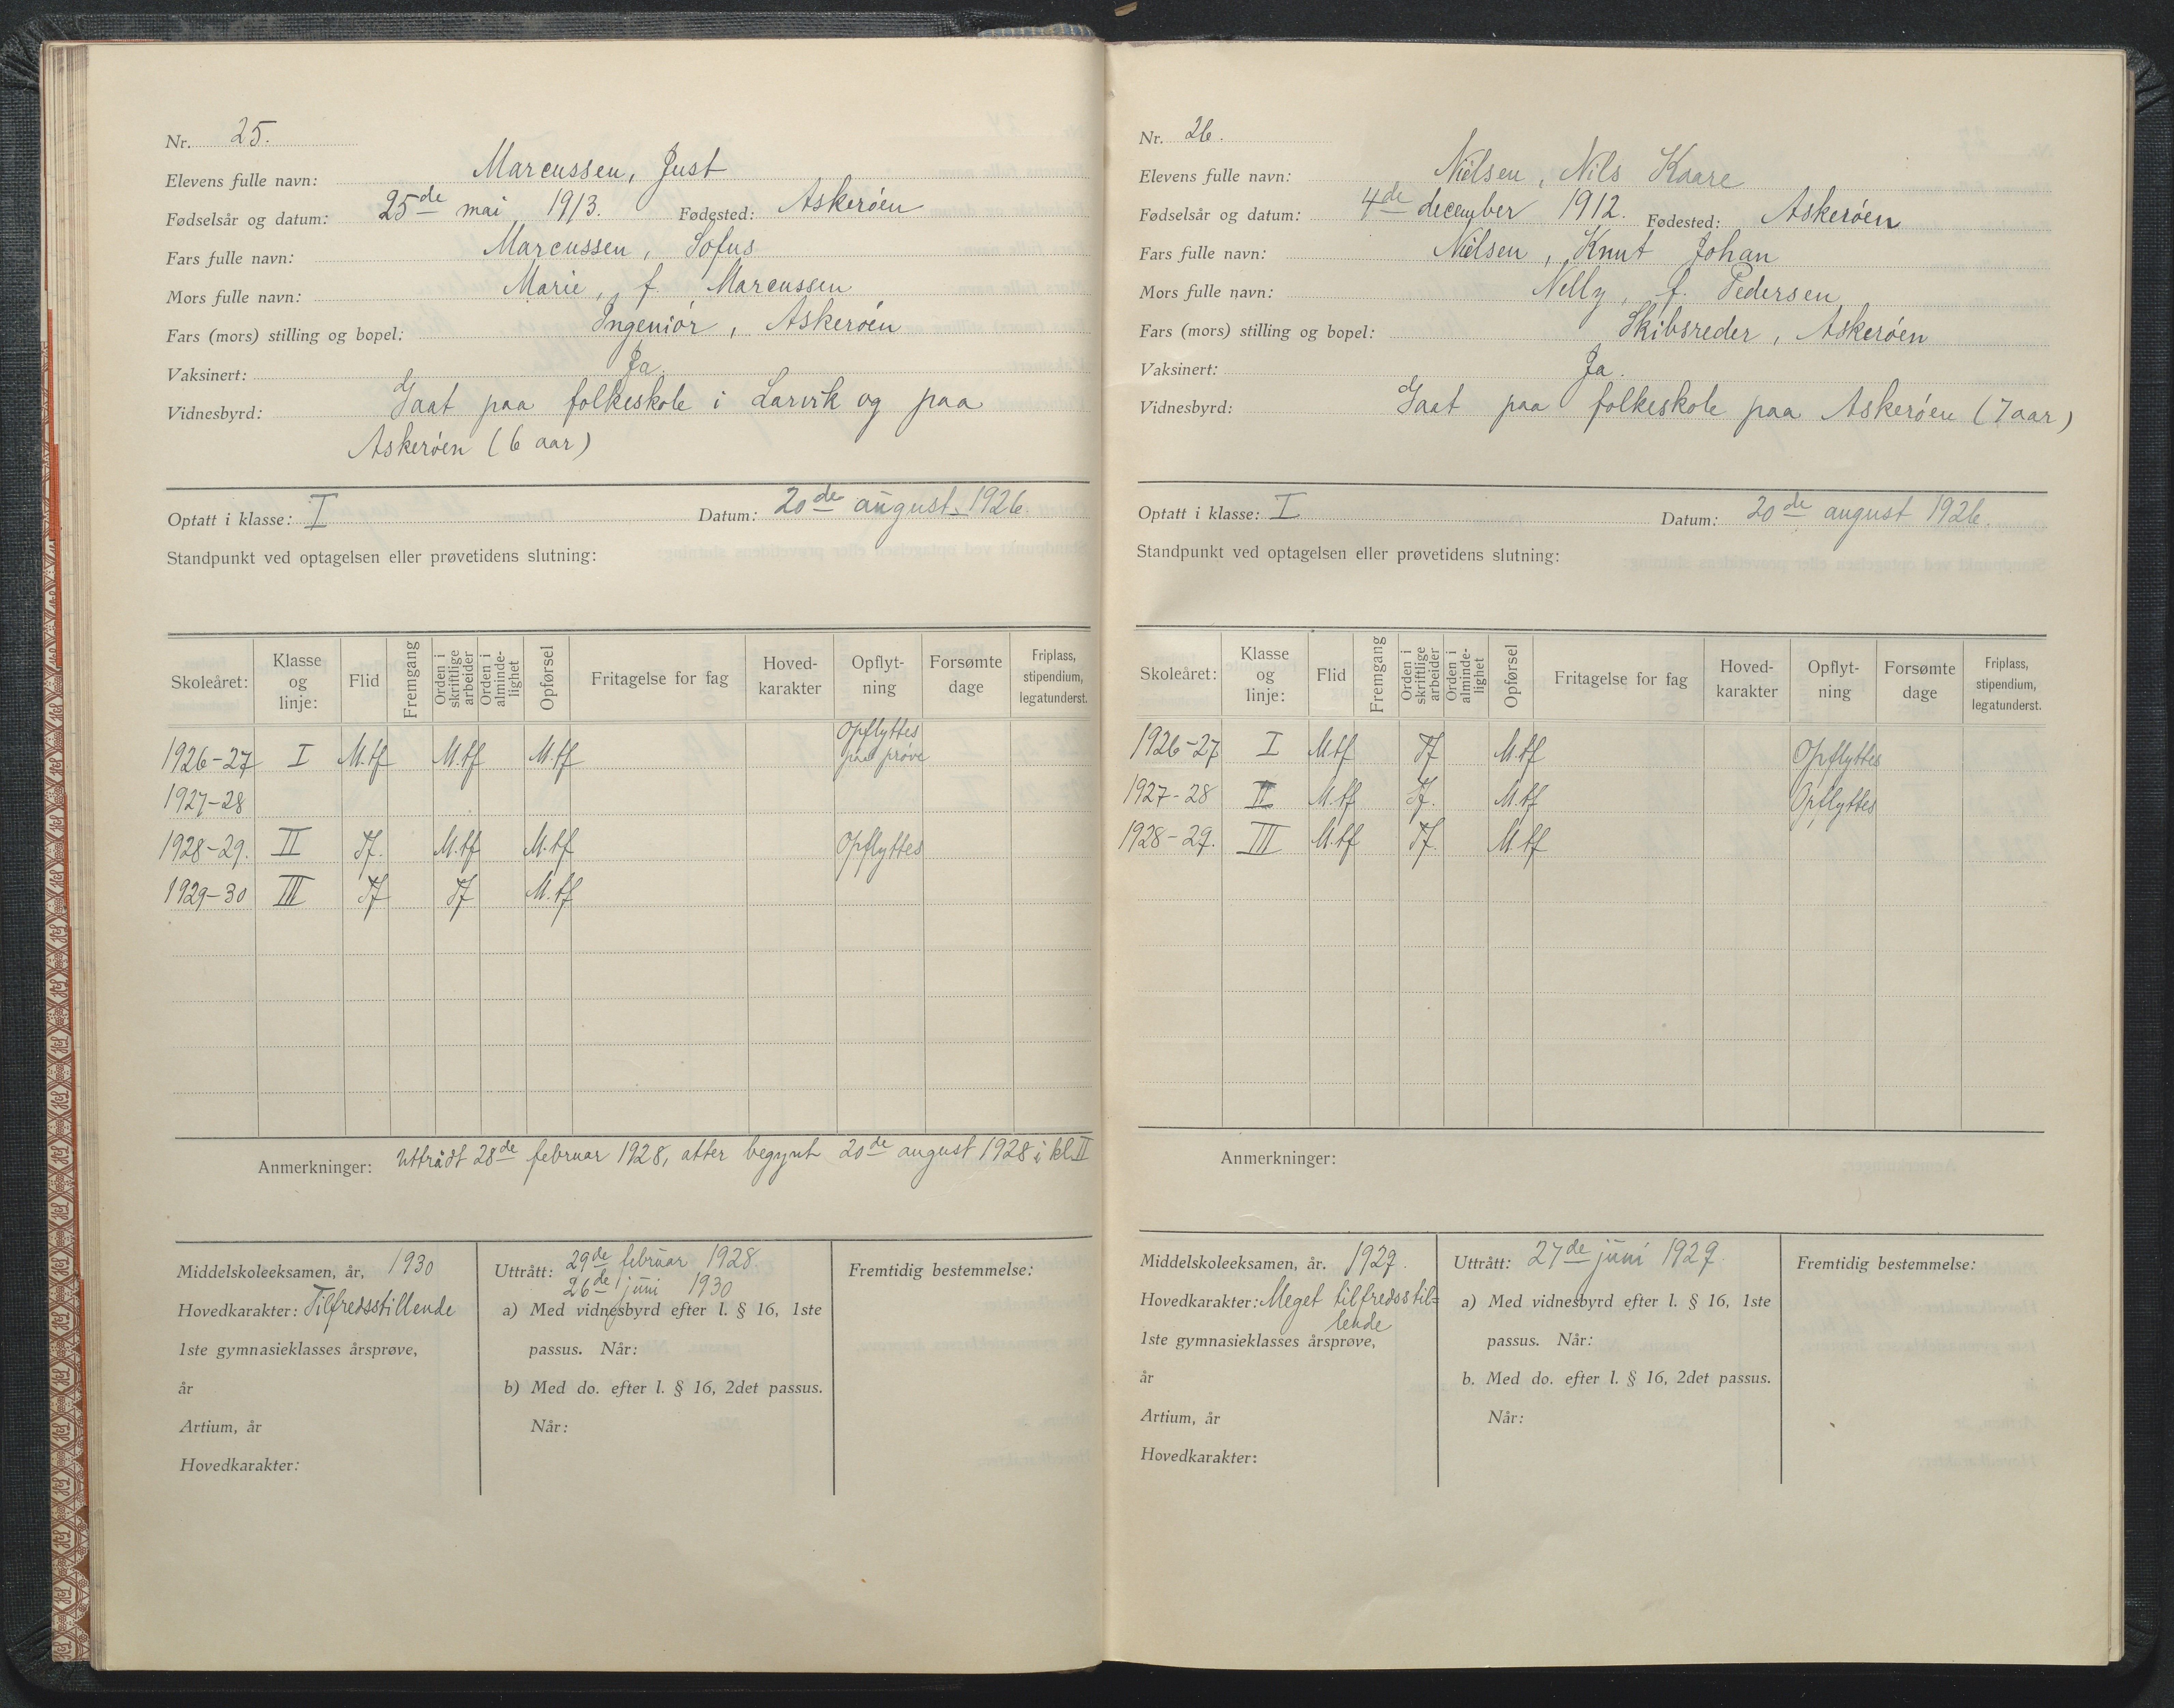 Nr. 25.
Elevens fulle navn: Marcussen, Just
Fødselsår og datum: 25de mai 1913. Fødested: Askerøen
Fars fulle navn: Marcussen, Sofus
Mors fulle navn: Marie, f. Marcussen
Fars (mors) stilling og bopel: Ingeniør, Askerøen
Vaksinert: Ja.
Vidnesbyrd: Gaat paa folkeskole i Larvik og paa
Askerøen (6 aar)
Optatt i klasse: I Datum: 20de august 1926.
Standpunkt ved optagelsen eller prøvetidens slutning:
Skoleåret: Klasse og linje: Flid Fremgang Orden i skriftlige arbeider Orden i alminde-lighet Opførsel Fritagelse for fag Hoved-karakter Opflyt-ning Forsømte dage Friplass, stipendium, legatunderst.
1926-27 I M.tf M.tf M.tf Opflyttes paa prøve
1927-28
1928-29. II Tf. M.tf M.tf Opflyttes
1929-30 III Tf Tf M.tf
Anmerkninger: Uttrådt 28de februar 1928, atter begynt 20de august 1928 i kl. II
Middelskoleeksamen, år, 1930
Hovedkarakter: Tilfredsstillende
1ste gymnasieklasses årsprøve,
år
Artium, år
Hovedkarakter:
Uttrått: 29de februar 1928.
26de juni 1930
a) Med vidnesbyrd efter l. § 16, 1ste
passus. Når:
b) Med do. efter l. § 16, 2det passus.
Når:
Fremtidig bestemmelse:
Nr. 26.
Elevens fulle navn: Nielsen, Nils Kaare
Fødselsår og datum: 4de december 1912. Fødested: Askerøen
Fars fulle navn: Nielsen, Knut Johan
Mors fulle navn: Nelly, f. Pedersen
Fars (mors) stilling og bopel: Skibsreder, Askerøen
Vaksinert: Ja.
Vidnesbyrd: Gaat paa folkeskole paa Askerøen (7 aar)
Optatt i klasse: I Datum: 20de august 1926.
Standpunkt ved optagelsen eller prøvetidens slutning:
Skoleåret: Klasse og linje: Flid Fremgang Orden i skriftlige arbeider Orden i alminde-lighet Opførsel Fritagelse for fag Hoved-karakter Opflyt-ning Forsømte dage Friplass, stipendium, legatunderst.
1926-27 I M.tf Tf M.tf Opflyttes
1927-28 II M.tf Tf. M.tf Opflyttes
1928-29. III M.tf Tf. M.tf
Anmerkninger:
Middelskoleeksamen, år. 1929.
Hovedkarakter: Meget tilfredsstil=
lende
1ste gymnasieklasses årsprøve,
år
Artium, år
Hovedkarakter:
Uttrått: 27de juni 1929.
a) Med vidnesbyrd efter l. § 16, 1ste
passus. Når:
b. Med do. efter l. § 16, 2det passus.
Når:
Fremtidig bestemmelse: